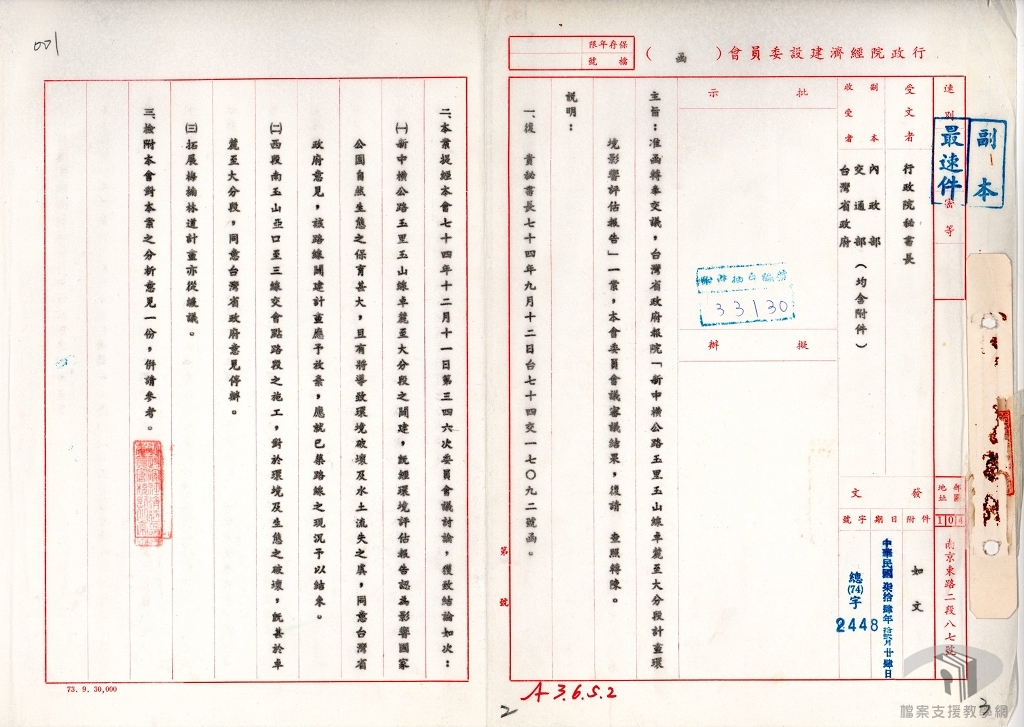 001
行政院經濟建設委員會（函）
保存年限
檔號
副本
速別
最速件
密等
受文者
行政院秘書長
副本
收受者
內政部
交通部（均含附件）
台灣省政府
批示
擬辦
33130
發文
附件
如文
日期
中華民國柒拾肆年拾貳月廿肆日
字號
總(74)字
2448
郵區
地址
104
南京東路二段八七號
主旨：准函轉車交議，台灣省政府報院「新中橫公路玉里玉山線車麓至大分段計畫環
境影響評估報告」一案，本會委員會議審議結果，復請　查照轉陳。
說明：
一、復　貴秘書長七十四年九月十二日台七十四交一七〇九二號函。
第　號
二、本案提經本會七十四年十二月十一日第三四六次委員會議討論，獲致結論如次：
㈠新中橫公路玉里玉山線卓麓至大分段之闢建，既經環境評估報告認為影響國家
公園自然生態之保育甚大，且有將導致環境破壞及水土流失之虞，同意台灣省
政府意見，該路線闢建計畫應予放棄，應就已築路線之現況予以結束。
㈡西段南玉山亞口至三線交會點路段之施工，對於環境及生態之破壞，既甚於卓
麓至大分段，同意台灣省政府意見停辦。
㈢拓展梅楠林道計畫亦從緩議。
三、檢附本會對本案之分析意見一份，併請參考。
73. 9. 30,000
A 3.6.5.2
2
3
檔案支援教學網